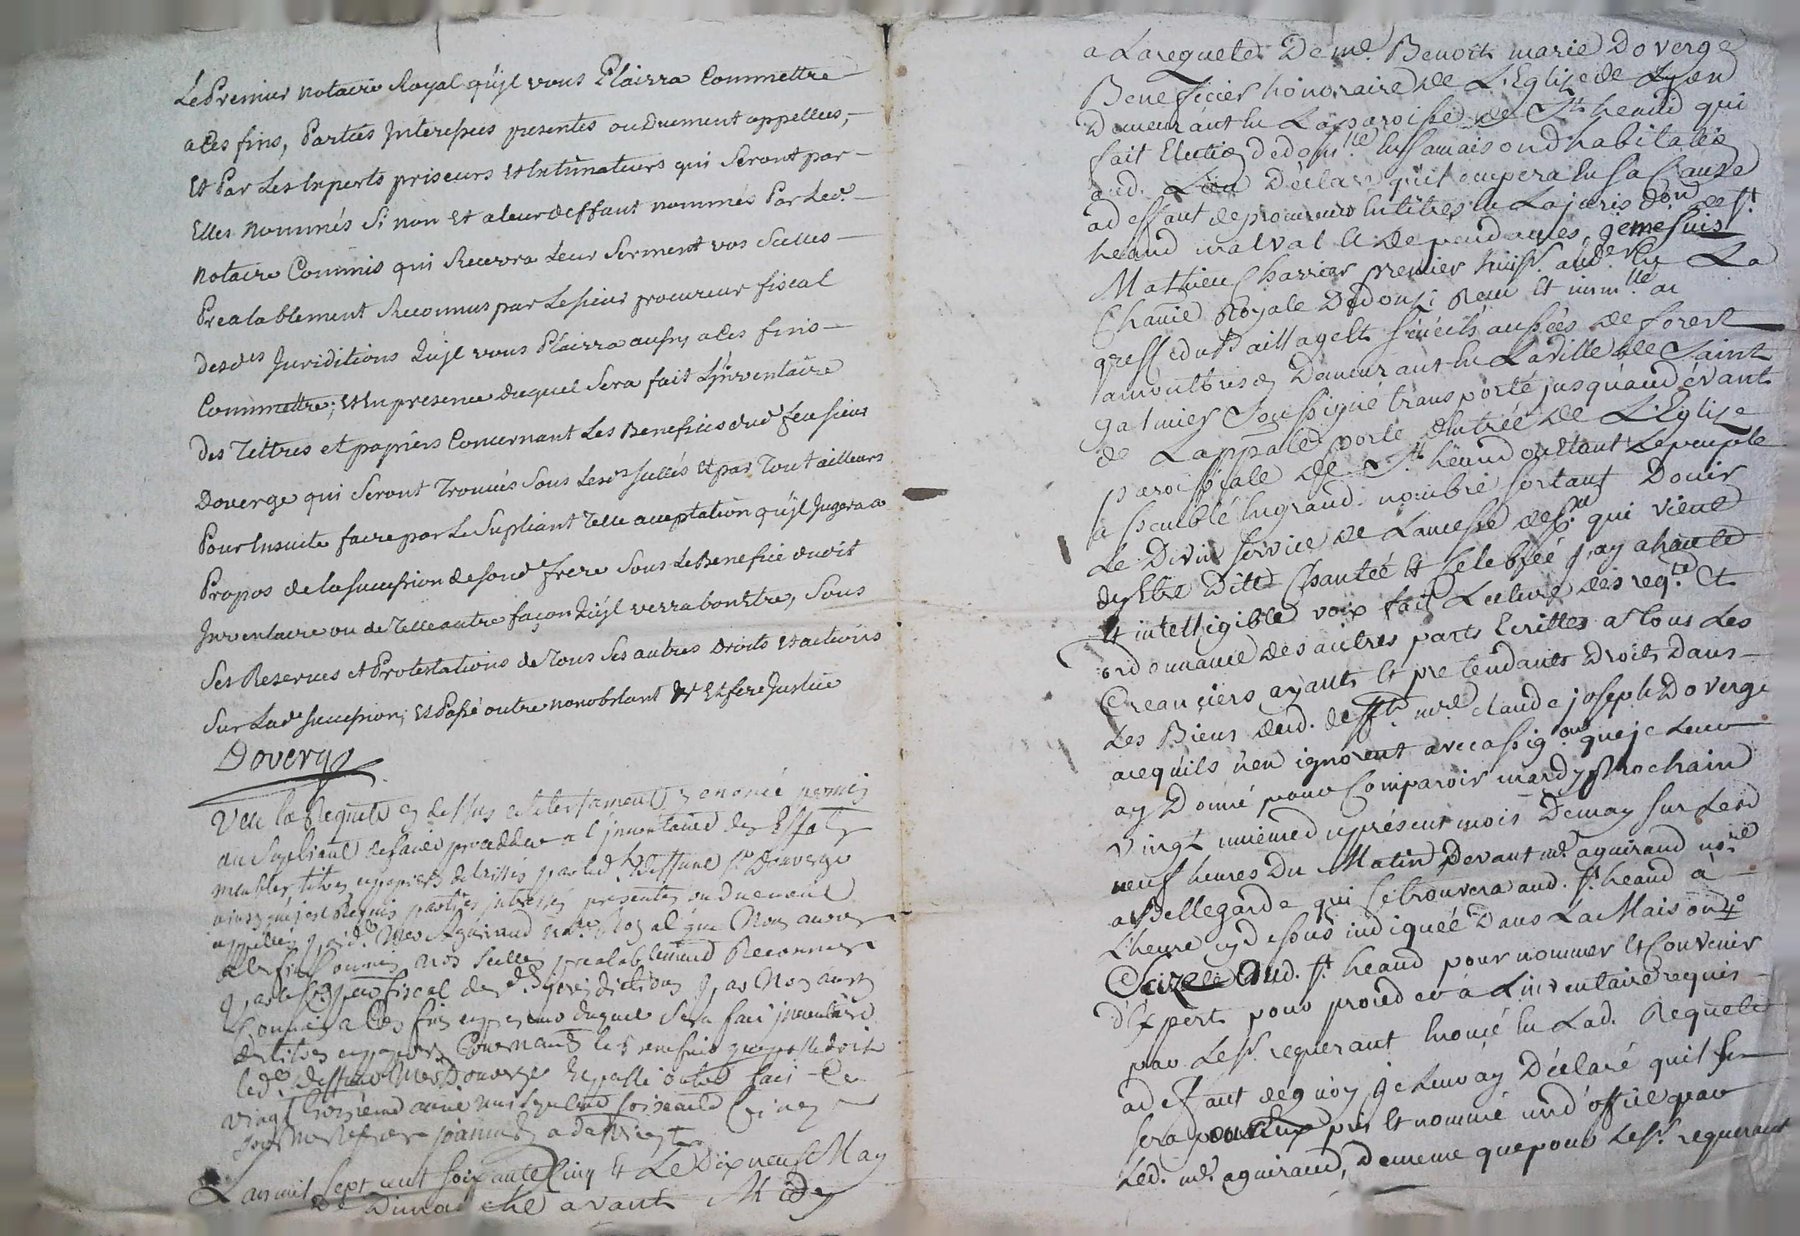 Le Premier notaire Royal quÿl vous Plairra Commettre
a Ces fins, Parties Interessees presentes ou Duement appellees, —
Et Par Les Experts priseurs et Estimateurs qui Seront par —
Elles Nommés Si non Et a leur deffaut nommés Par Led. —
Notaire Commis qui Recevra Leur Serment vos Scellés —
Prealablement Reconnus par Le sieur procureur fiscal
desdes Juriditions Quÿl vous Plairra aussy a Ces fins —
Commettre; Et En presence duquel Sera fait L'Inventaire
Des Tettres et papiers Concernant Les Benefices dud feu sieur
Doverge qui Seront Trouvés Sous Lesds scellés Et par Tout ailleurs
Pour Ensuite faire par Le Supliant Telle acceptation qu'ÿl Jugera a
Propos de la succession de Sond frere Sous Le Benefice du oit
Inventaire ou de Telle autre façon Quÿl verra bon Etre, Sous
Ses Reserves et Protestations de Tous Ses autres Droits Et actions
Sur Lade succession; Et Passé outre nonobstant & Et fere Justice
Doverge
Veu la Requete cy dessus et le testament enoncé permis
au Supliant de faire proceder a l'inventaire des Effets
meubles, titres et papiers delaissés par led. deffunt Sr Doverge
ainsy qu'il est Requis parties interessés presentes ou Duement
appellées par Me Aguiraud no.re Royal que Nous avons
nos scellés prealablement Reconnus
par le Sr fiscal des d. Juridictions par Nous aussy
Commis a Ces fins en presence duquel Sera fait inventaire
des titres et papiers Concernant les benefices
led. deffunt Doverge Et passé outre fait Ce
vingt troisieme avril mil sept cent soixante Cinq
L'an mil sept cent soixante Cinq Et Le Dix neuf May
de Dimanche avant Midy
a La requete De me. Benoit marie Doverge
Beneficier honoraire de L'Eglise de Lyon
Demeurant en La paroisse de St heand qui
fait Election de domlle en sa maison d'habitation
aud. Lieu Déclare qu'il ocupera en sa Cause
a deffaut de procureurs En titres En La jurisdon de St
heand malval Et Dependances, je me suis
Mathieu Charrier premier huissr. aud. en La
Chanie Royale De Reçu Et imm.lle au
greffe du Baillage Et Sénéchaussées de forest
a montbrison Demeurant en La ville de Saint
galmier Soussigné transporté jusqu'au devant
de L'appale porte d'entrée de L'Eglize
paroissiale de St heand ou Etant Le peuple
assemblé En grand nombre sortant D'ouir
Le Divin Service de La messe de psse qui vient
dy Etre ditte Chantée Et Celebrée j'ay a haute
Et intelligible voix fait Lecture des reqte Et
ordonnance des autres parts Ecrittes a tous Les
Creanciers ayants Et pretendants Droits Dans —
Les Biens dud. deft. me claude joseph Doverge
a ce qu'ils n'en ignorent avec assigon. que je Leur
ay Donné pour Comparoir mardy prochain
vingt unieme du présent mois De may sur Les
neuf heures Du Matin Devant me aguiraud nore
a Bellegarde qui se trouvera aud. St heand a —
L'heure cy dessus indiquée Dans La Maison
Scize aud. St heand pour nommer Et Convenir
d'Expert pour proceder a L'inventaire requis —
par Le Sr. requerant Enoncé En Lad. Requete
a deffaut de quoy je Leur ay Déclaré qu'il En
sera pris Et nommé un d'office par
Led. me. aguiraud, De meme que pour Le Sr. requerant